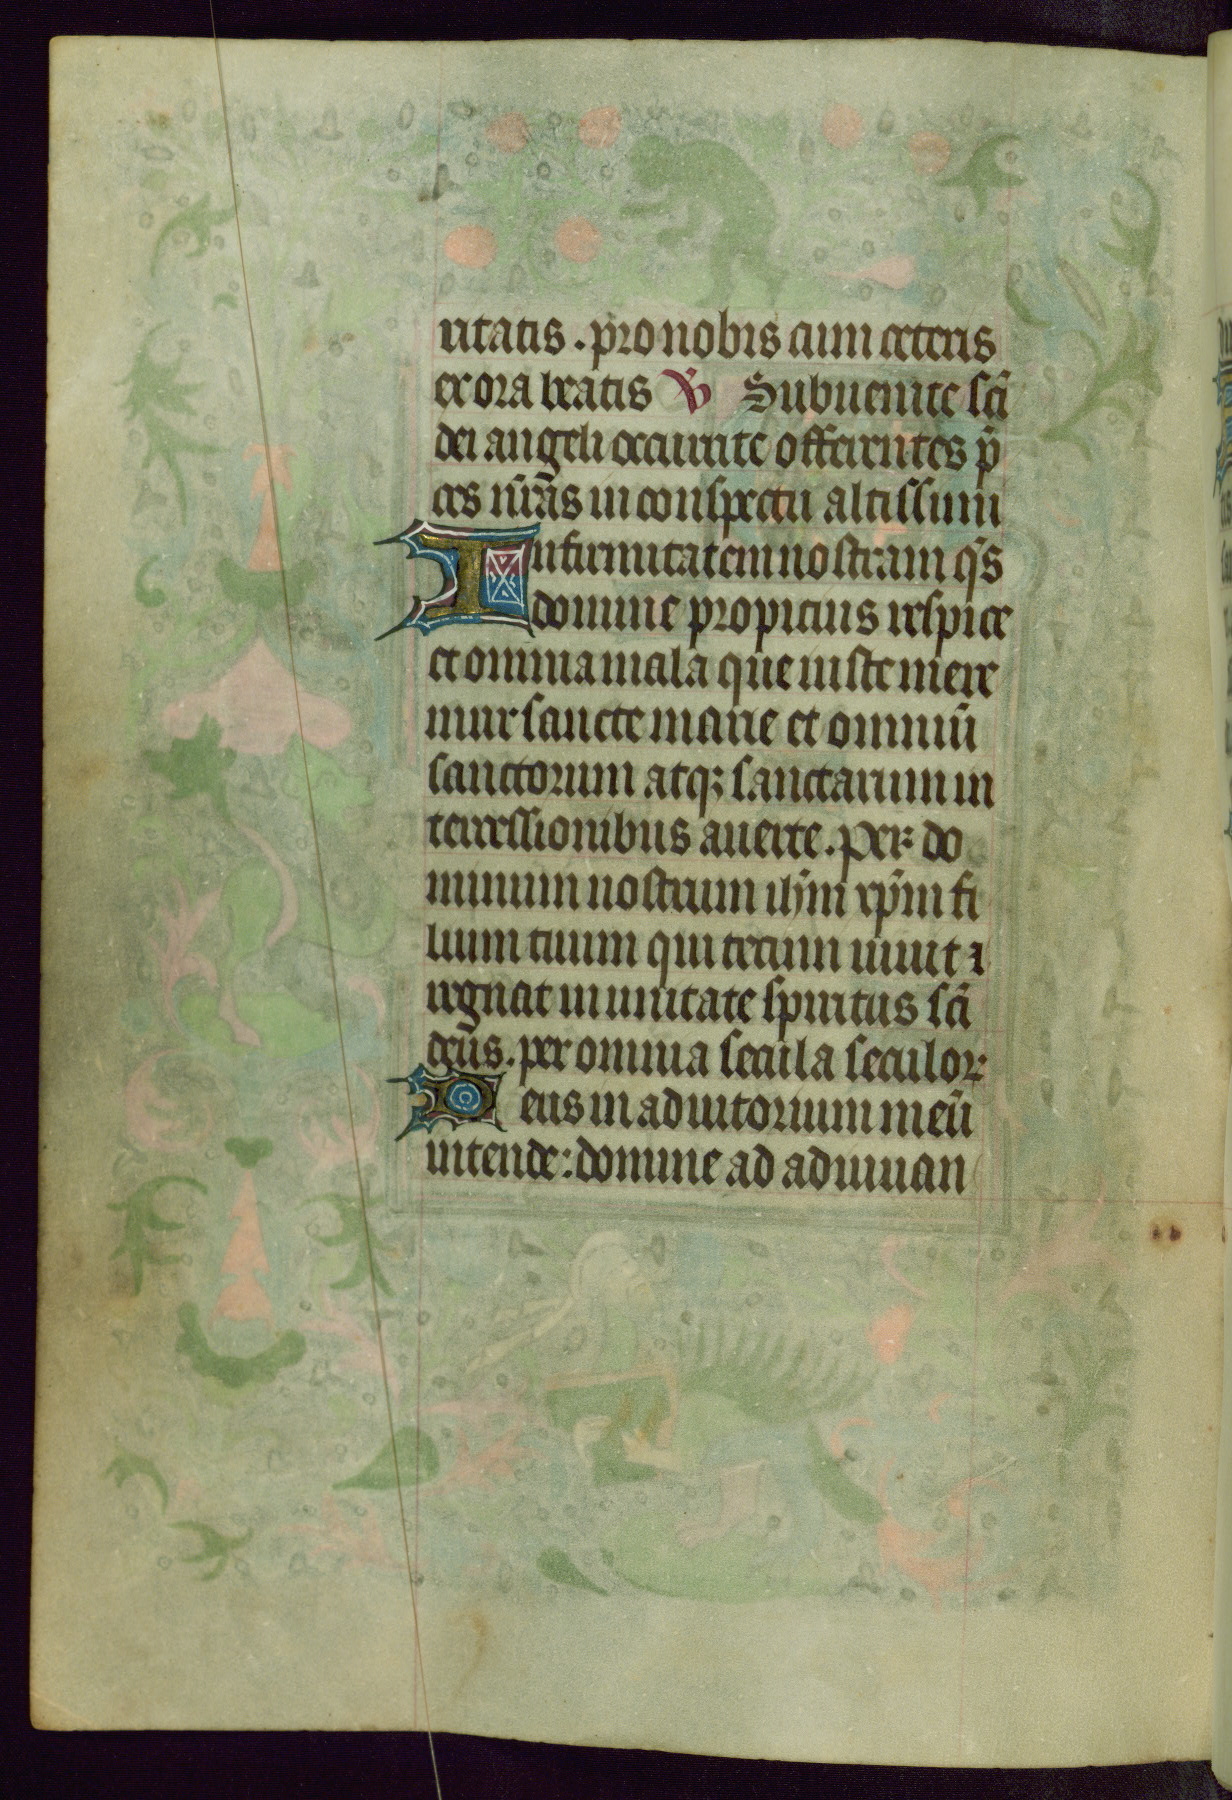 uitatis . pro nobis cum ceteris
exora beatis ℣ Subuenite sc̄i
dei angeli occurrite offerentes p̄
ces nr̄as in conspectu altissimi
Infirmitatem nostram qs̄
domine propicius respice
et omnia mala que iuste mere
mur sancte marie et omniū
sanctorum atqꝫ sanctarum in
tercessionibus auerte . Per do
minum nostrum ihm̄ xpm̄ fi
lium tuum qui tecum uiuit ⁊
regnat in unitate spiritus sc̄i
deus . per omnia secula seculoꝝ
Deus in adiutorium meū
intende : domine ad adiuuan